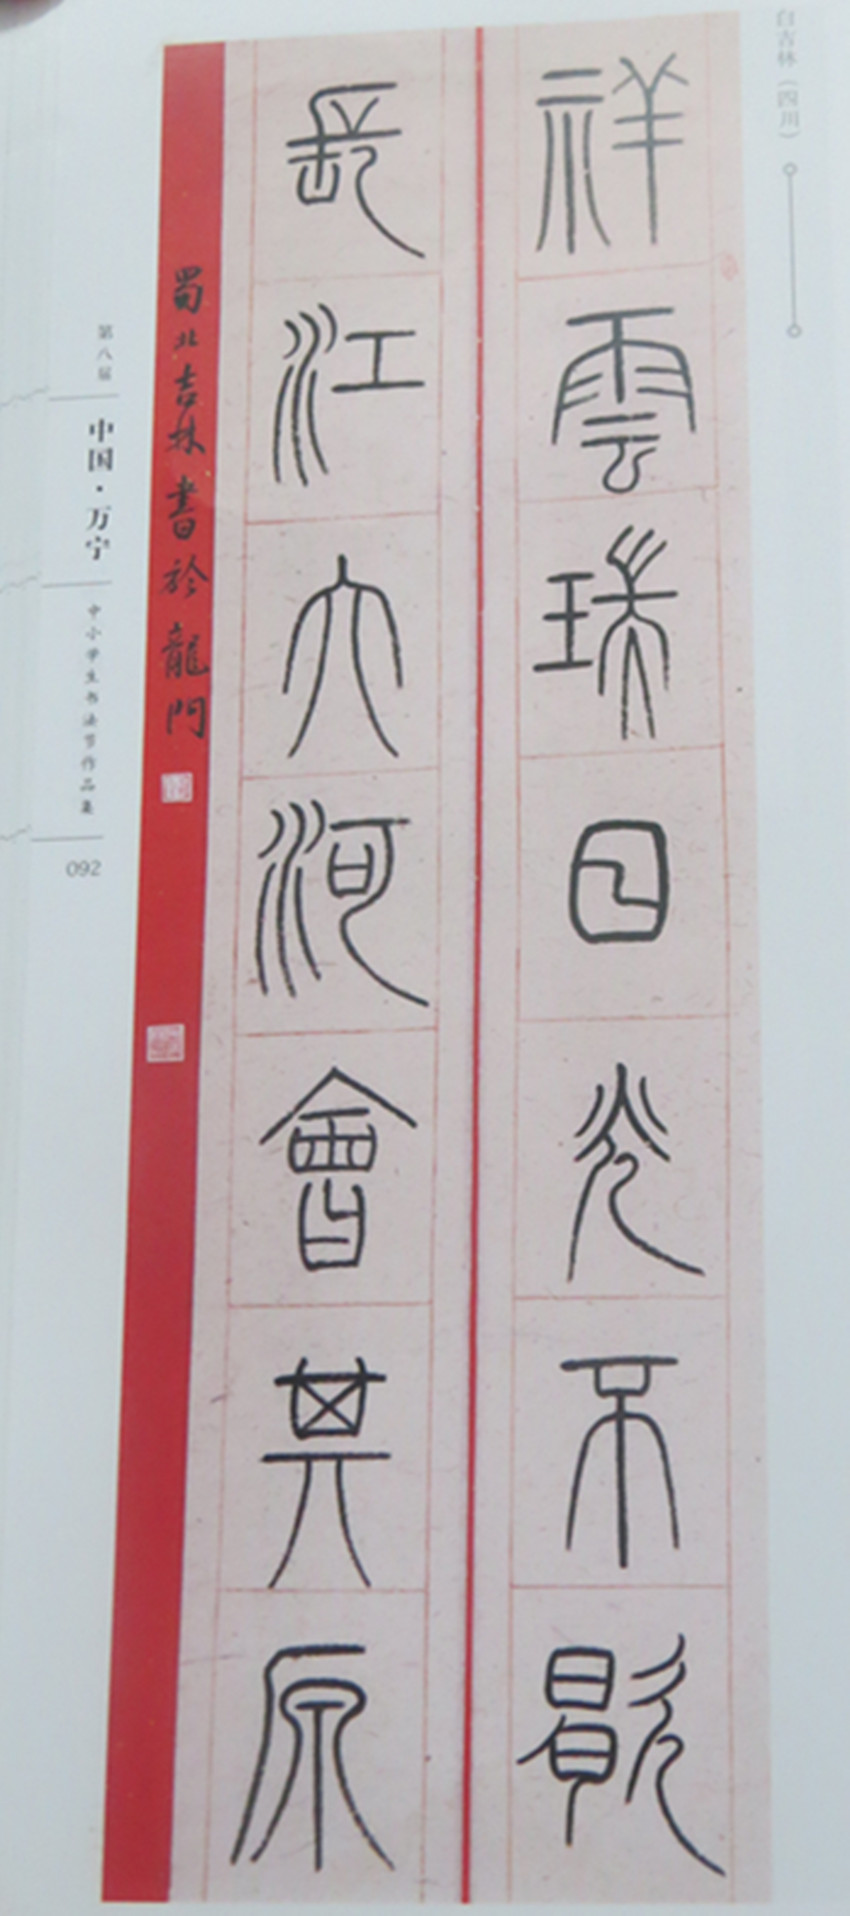 白吉林（四川）
祥雲瑞日光不歇
長江大河會其原
蜀北吉林書於龍門
第八届
中国·万宁
中小学生书法节作品集
092